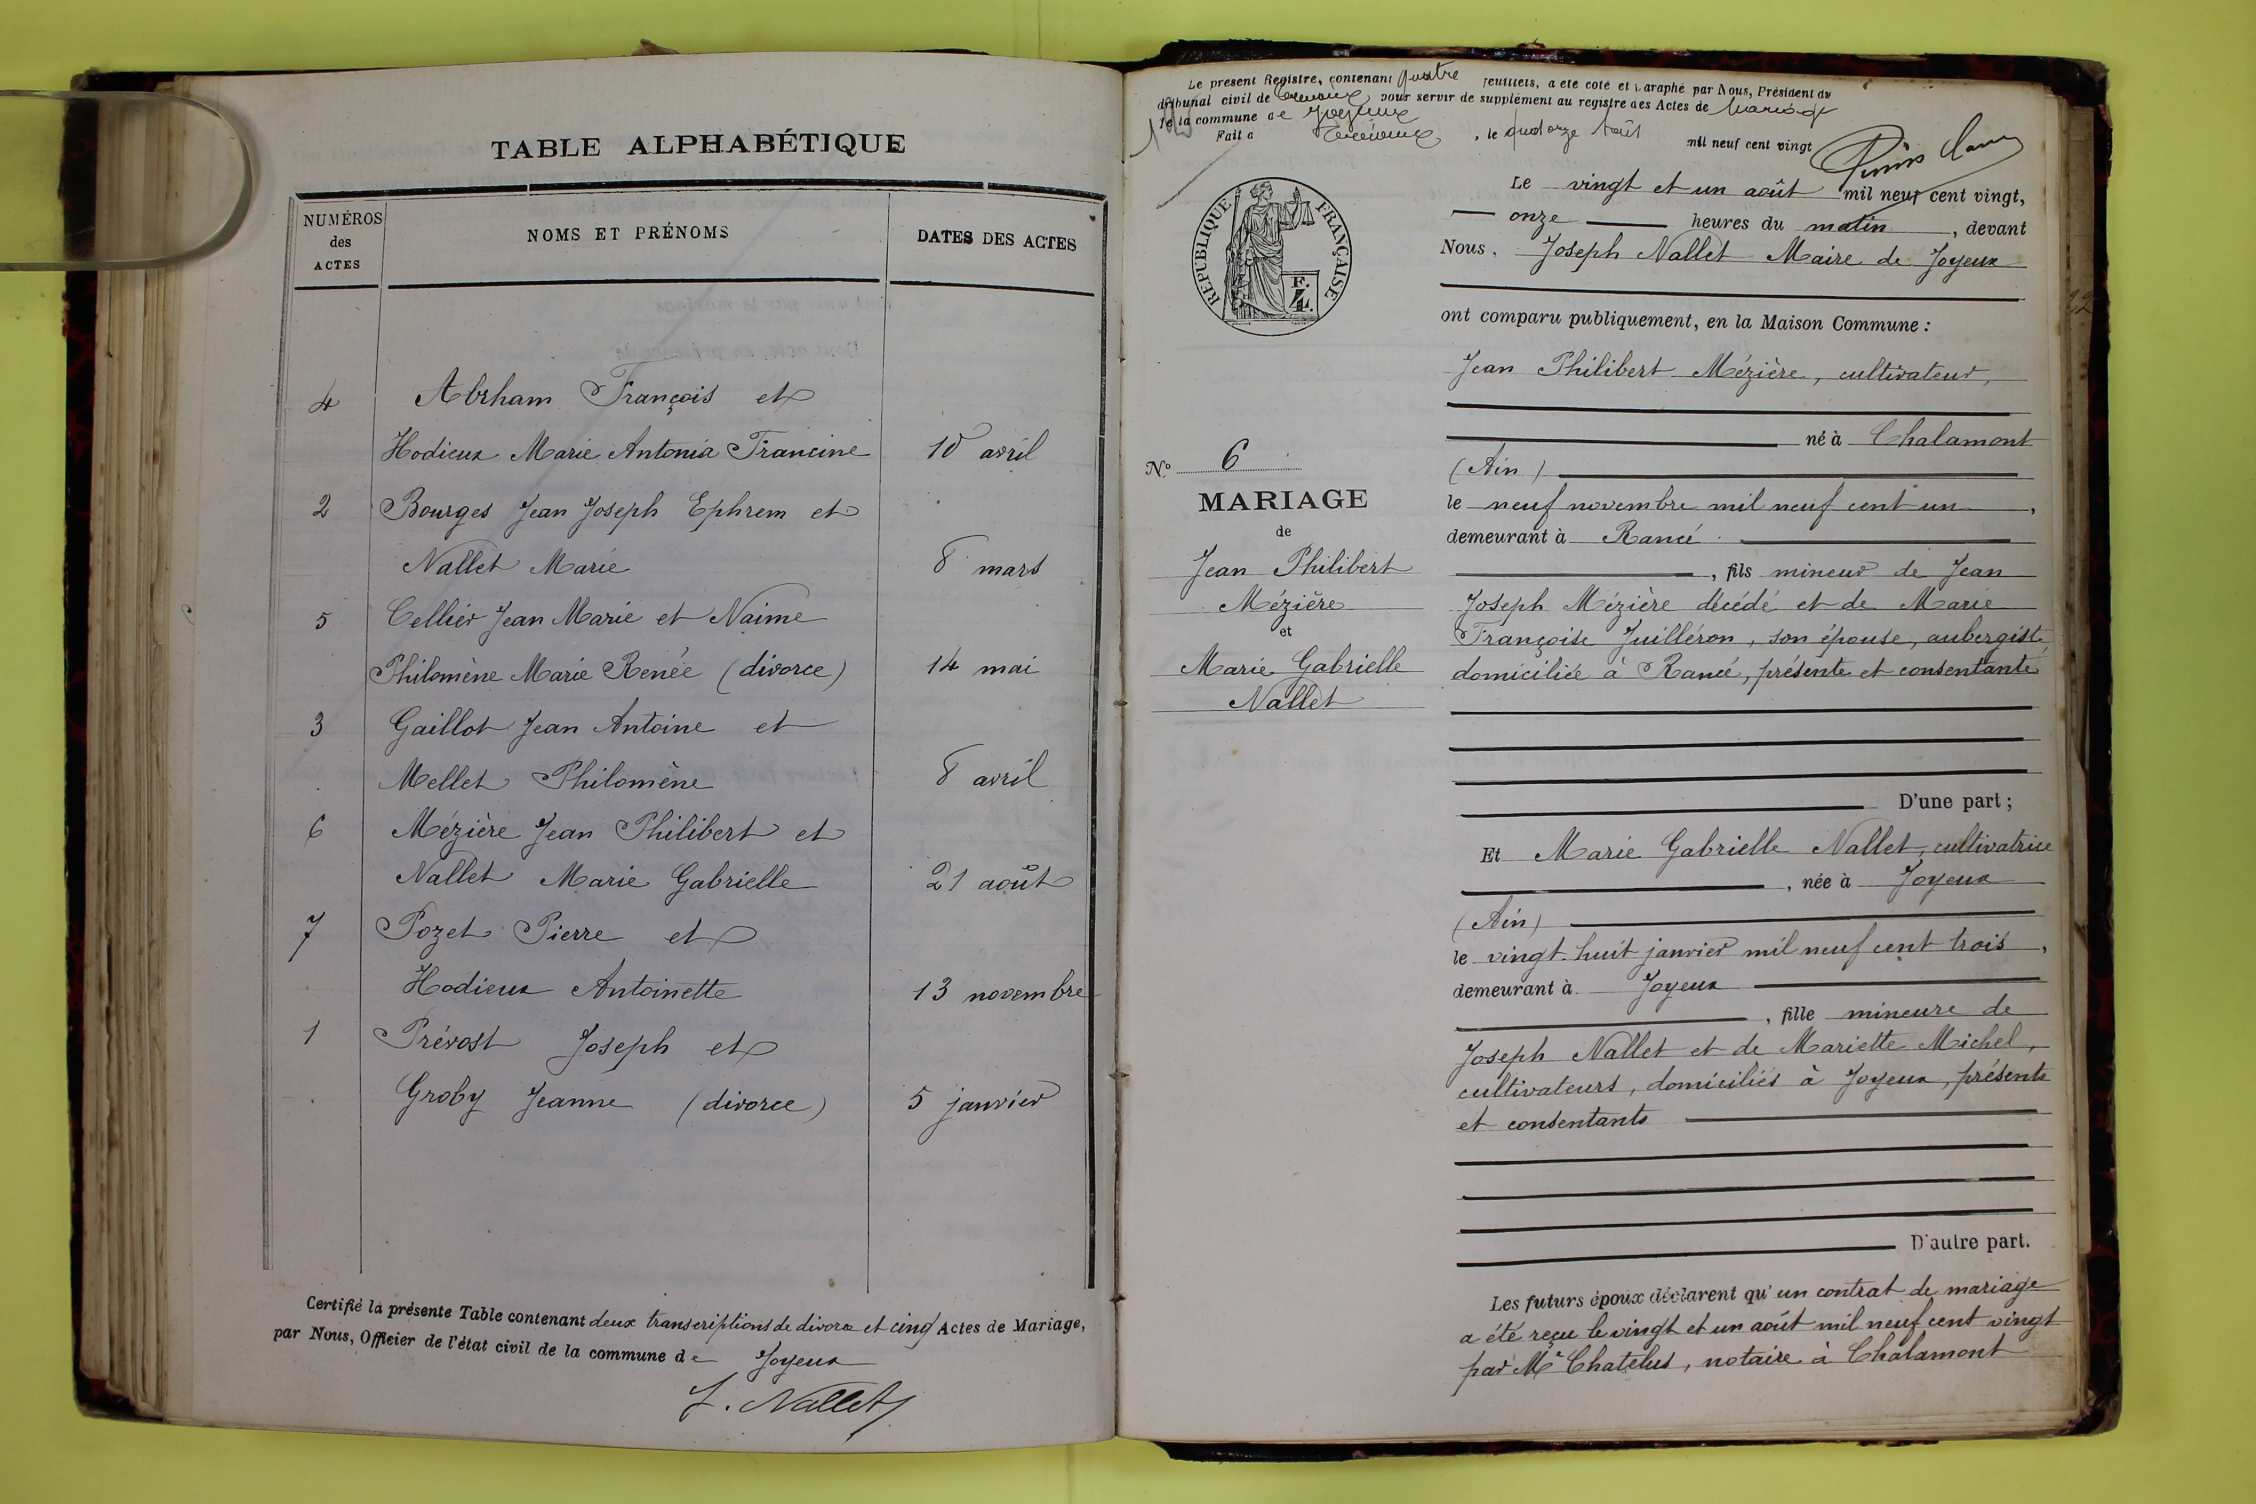 TABLE ALPHABÉTIQUE
NUMÉROS des ACTES
NOMS ET PRÉNOMS
DATES DES ACTES
4 Abrham François et
Hodieux Marie Antonia Francine 10 avril
2 Bourges Jean Joseph Ephrem et
Nallet Marie 8 mars
5 Cellier Jean Marie et Naime
Philomène Marie Renée (divorce) 14 mai
3 Gaillot Jean Antoine et
Mellet Philomène 8 avril
6 Mézière Jean Philibert et
Nallet Marie Gabrielle 21 août
7 Pozet Pierre et
Hodieux Antoinette 13 novembre
1 Prévost Joseph et
Groby Jeanne (divorce) 5 janvier
Certifié la présente Table contenant deux transcriptions de divorce et cinq Actes de Mariage,
par Nous, Officier de l'état civil de la commune de Joyeux
J. Nallet
Le présent Registre, contenant quatre feuillets, a été coté et paraphé par Nous, Président du
tribunal civil de Trévoux pour servir de supplément au registre des Actes de Mariage
de la commune de Joyeux
Fait a Trévoux, le quatorze Août mil neuf cent vingt
RÉPUBLIQUE FRANÇAISE
F.
4.
Le vingt et un août mil neuf cent vingt,
onze heures du matin, devant
Nous, Joseph Nallet Maire de Joyeux
ont comparu publiquement, en la Maison Commune :
Jean Philibert Mézière, cultivateur,
né à Chalamont
(Ain)
le neuf novembre mil neuf cent un,
demeurant à Rancé
, fils mineur de Jean
Joseph Mézière décédé et de Marie
Françoise Juilléron, son épouse, aubergiste
domiciliée à Rancé, présente et consentante
D'une part ;
N° 6
MARIAGE
de
Jean Philibert
Mézière
et
Marie Gabrielle
Nallet
Et Marie Gabrielle Nallet, cultivatrice
, née à Joyeux
(Ain)
le vingt huit janvier mil neuf cent trois,
demeurant à Joyeux
, fille mineure de
Joseph Nallet et de Mariette Michel,
cultivateurs, domiciliés à Joyeux, présents
et consentants
D'autre part.
Les futurs époux déclarent qu'un contrat de mariage
a été reçu le vingt et un août mil neuf cent vingt
par Me Chatelus, notaire à Chalamont